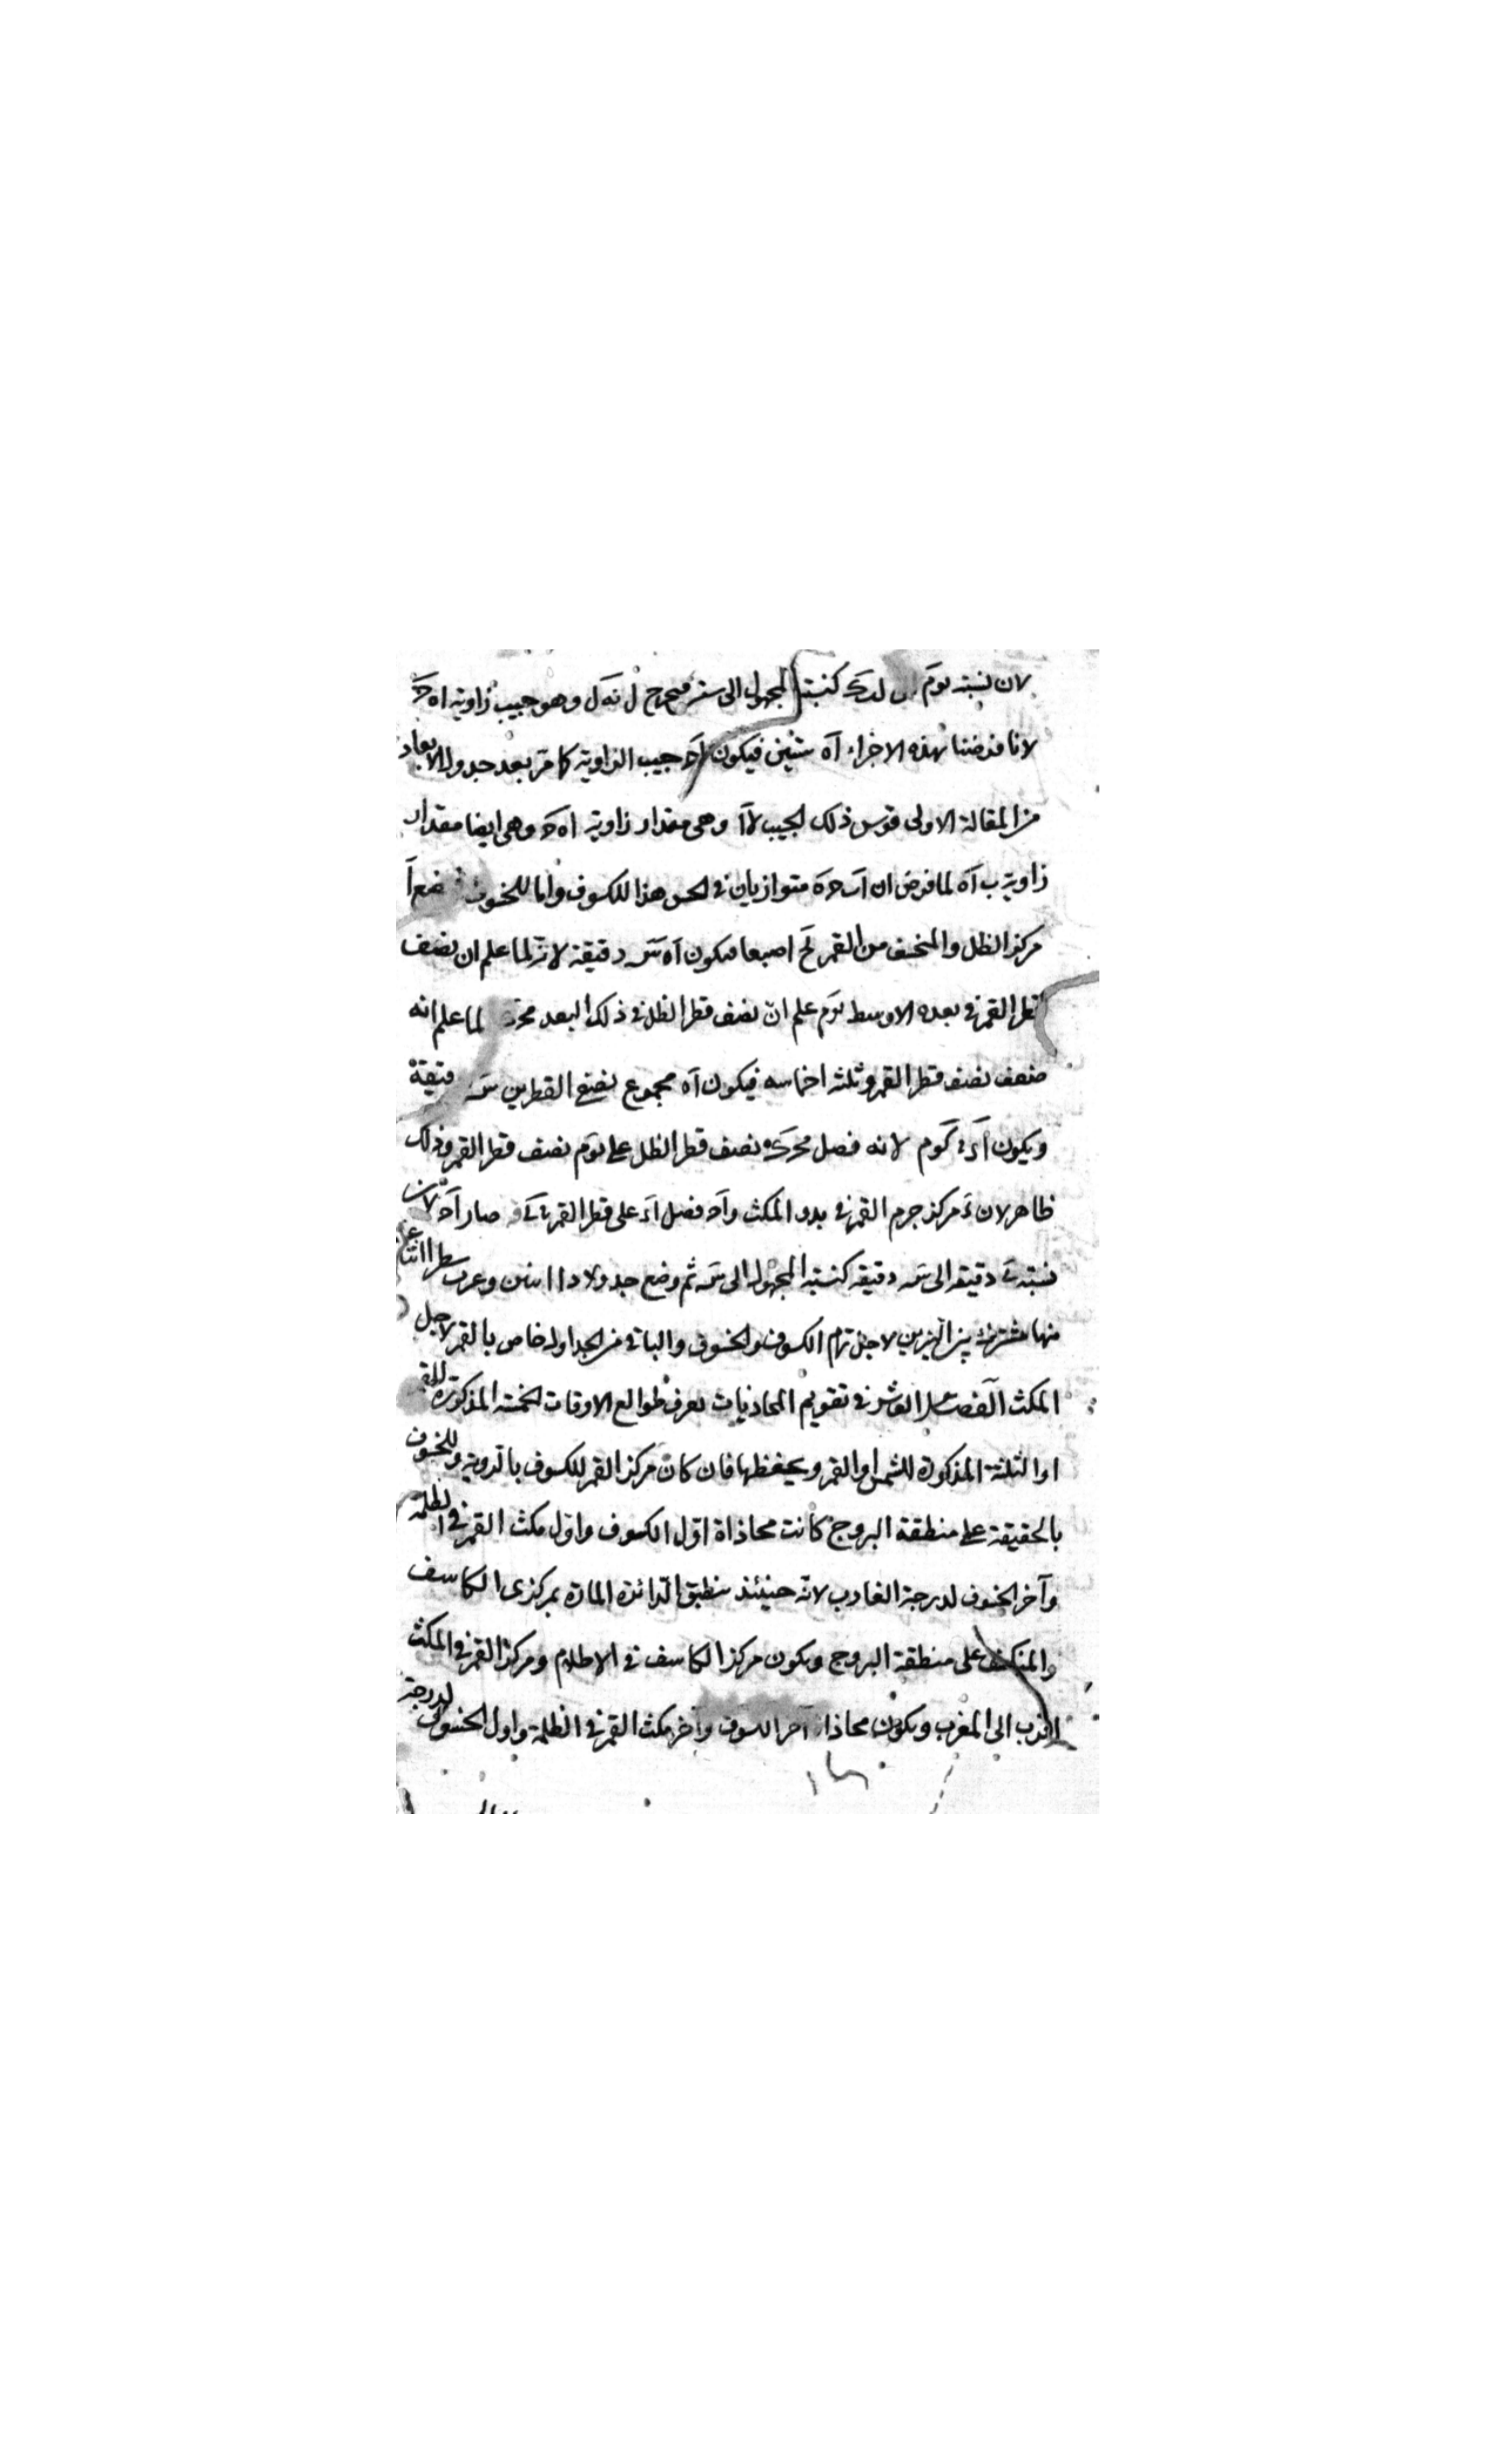 لان نسبة يوم لدك كنسبة المجهول الى ستين فيخرج ل نه ل وهو جيب زاوية اه ح
لانا فرضنا بهذه الاجزاء اه ستين فيكون اح جيب الزاوية كما مر بعد جدول الابعاد
من المقالة الاولى قوس ذلك الجيب لا وهى مقدار زاوية اه ح وهى ايضا مقدار
زاوية ب اه لما فرض ان اب ح ه متوازيان فى الحس هذا للكسوف واما للخسوف
مركز الظل والمنخسف من القمر لح اصبعا فيكون اه س دقيقة لانه لما علم ان نصف
قطر القمر فى بعده الاوسط يوم علم ان نصف قطر الظل فى ذلك البعد لما علم انه
ضعف نصف قطر القمر وثلثة اخماسه فيكون اه مجموع نصفى القطرين س دقيقة
ويكون اء كوم لانه فضل نصف قطر الظل على يوم نصف قطر القمر وذلك
ظاهر لان ء مركز جرم القمر فى بدو المكث واح فضل اء على قطر القمر صار اح لان
نسبة دقيقة الى س دقيقة كنسبة المجهول الى س ثم وضع جدولا سطرا اثنا عشر
منها مشتركة بين النيرين لاجل تمام الكسوف والخسوف والباقى من الجداول خاص بالقمر لاجل
المكث الفصل العاشر فى تقويم المحاذيات نعرف طوالع الاوقات الخمسة المذكورة للقمر
او الثلثة المذكورة للشمس او القمر ويحفظها فان كان مركز القمر للكسوف بالروية وللخسوف
بالحقيقة على منطقة البروج كانت محاذاة اول الكسوف واول مكث القمر فى الظلمة
وآخر الخسوف لدرجة الغارب لانه حينئذ ينطبق الدائرة المارة بمركزى الكاسف
والمنكسف على منطقة البروج ويكون مركز الكاسف فى الاظلام ومركز القمر فى المكث
اقرب الى المغرب ويكون محاذاة آخر الكسوف وآخر مكث القمر فى الظلمة واول الخسوف لدرجة